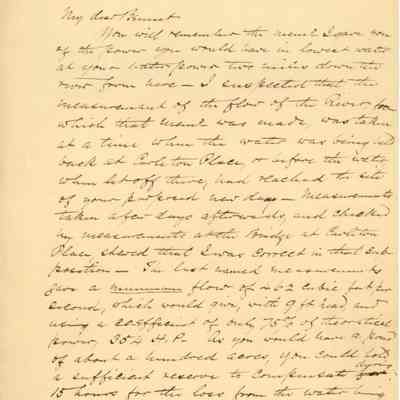 My dear Bennet
You will remember the memo I gave you
of the power you would have in lowest water
at your water power two miles down the
river from here - I suspected that the
measurement of the flow of the River from
which that memo was made, was taken
at a time when the water was being held
back at Carleton Place, or before the water
when let off there, had reached the site
of your proposed new dam - Measurements
taken a few days afterwards, and checked
by measurements at the Bridge at Carleton
Place showed that I was correct in that sup-
position - The last named measurements
gave a minimum flow of 462 cubic feet per
second, which would give, with 9 ft head, and
using a coefficient of only 75% of theoretical
power, 354 H.P. As you would have a pond
of about a hundred acres, you could hold
a sufficient reserve to compensate during
15 hours for the loss from the water being